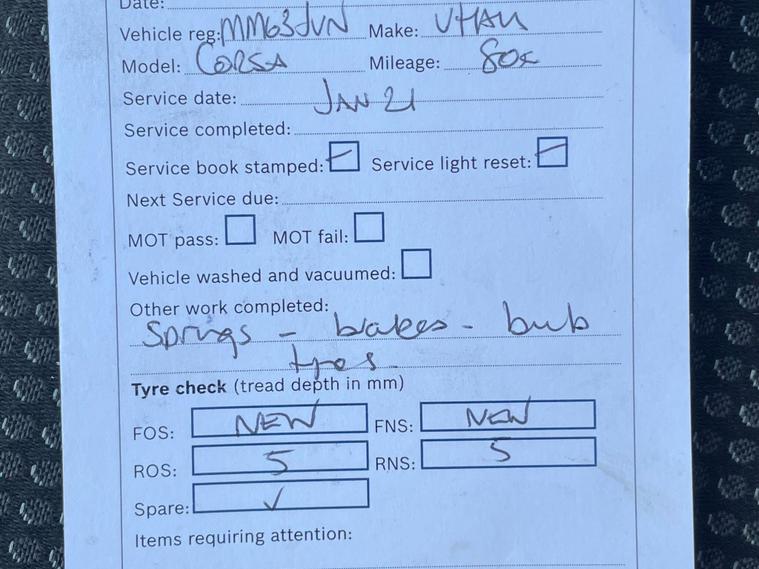 Date:
Vehicle reg: MM63JVN Make: VHAU
Model: CORSA Mileage: 80K
Service date: JAN 21
Service completed:
Service book stamped: Service light reset:
Next Service due:
MOT pass: MOT fail:
Vehicle washed and vacuumed:
Other work completed:
Springs - brakes - bulb
tyres
Tyre check (tread depth in mm)
FOS: NEW FNS: NEW
ROS: 5 RNS: 5
Spare: ✓
Items requiring attention: